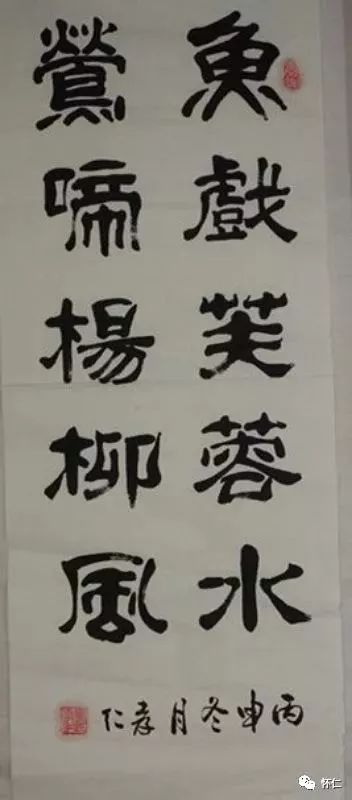 魚戲芙蓉水
鶯啼楊柳風
丙申冬月孝仁
怀仁